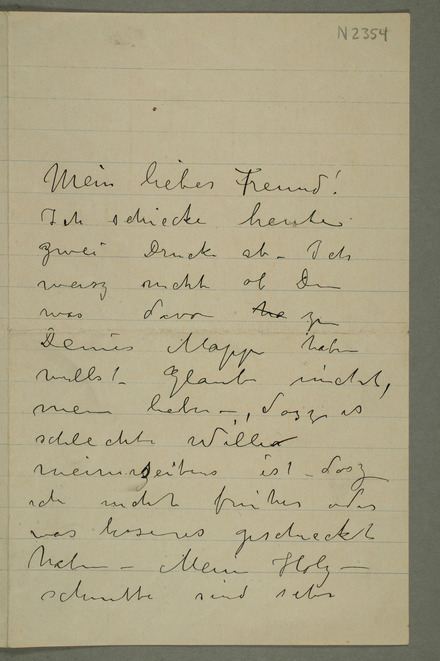 N2354
Mein lieber Freund!
Ich schicke heute
zwei Drucke ab – Ich
weisz nicht ob Du
was davon zu
Deiner Mappe haben
willst – Glaube nicht,
mein lieber –, dasz es
schlechter Wille
meinerseitens ist – dasz
ich nicht früher oder
was besseres geschickt
habe – Meine Holz–
schnitte sind sehr